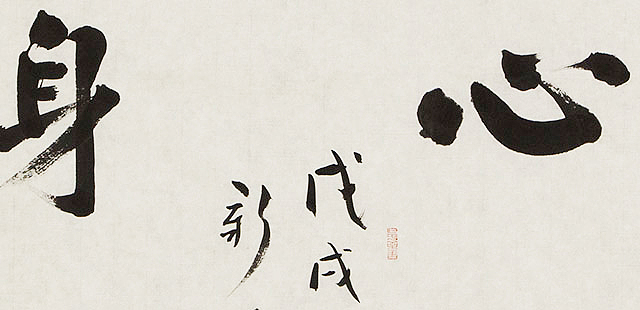 心
戊戌
新
身